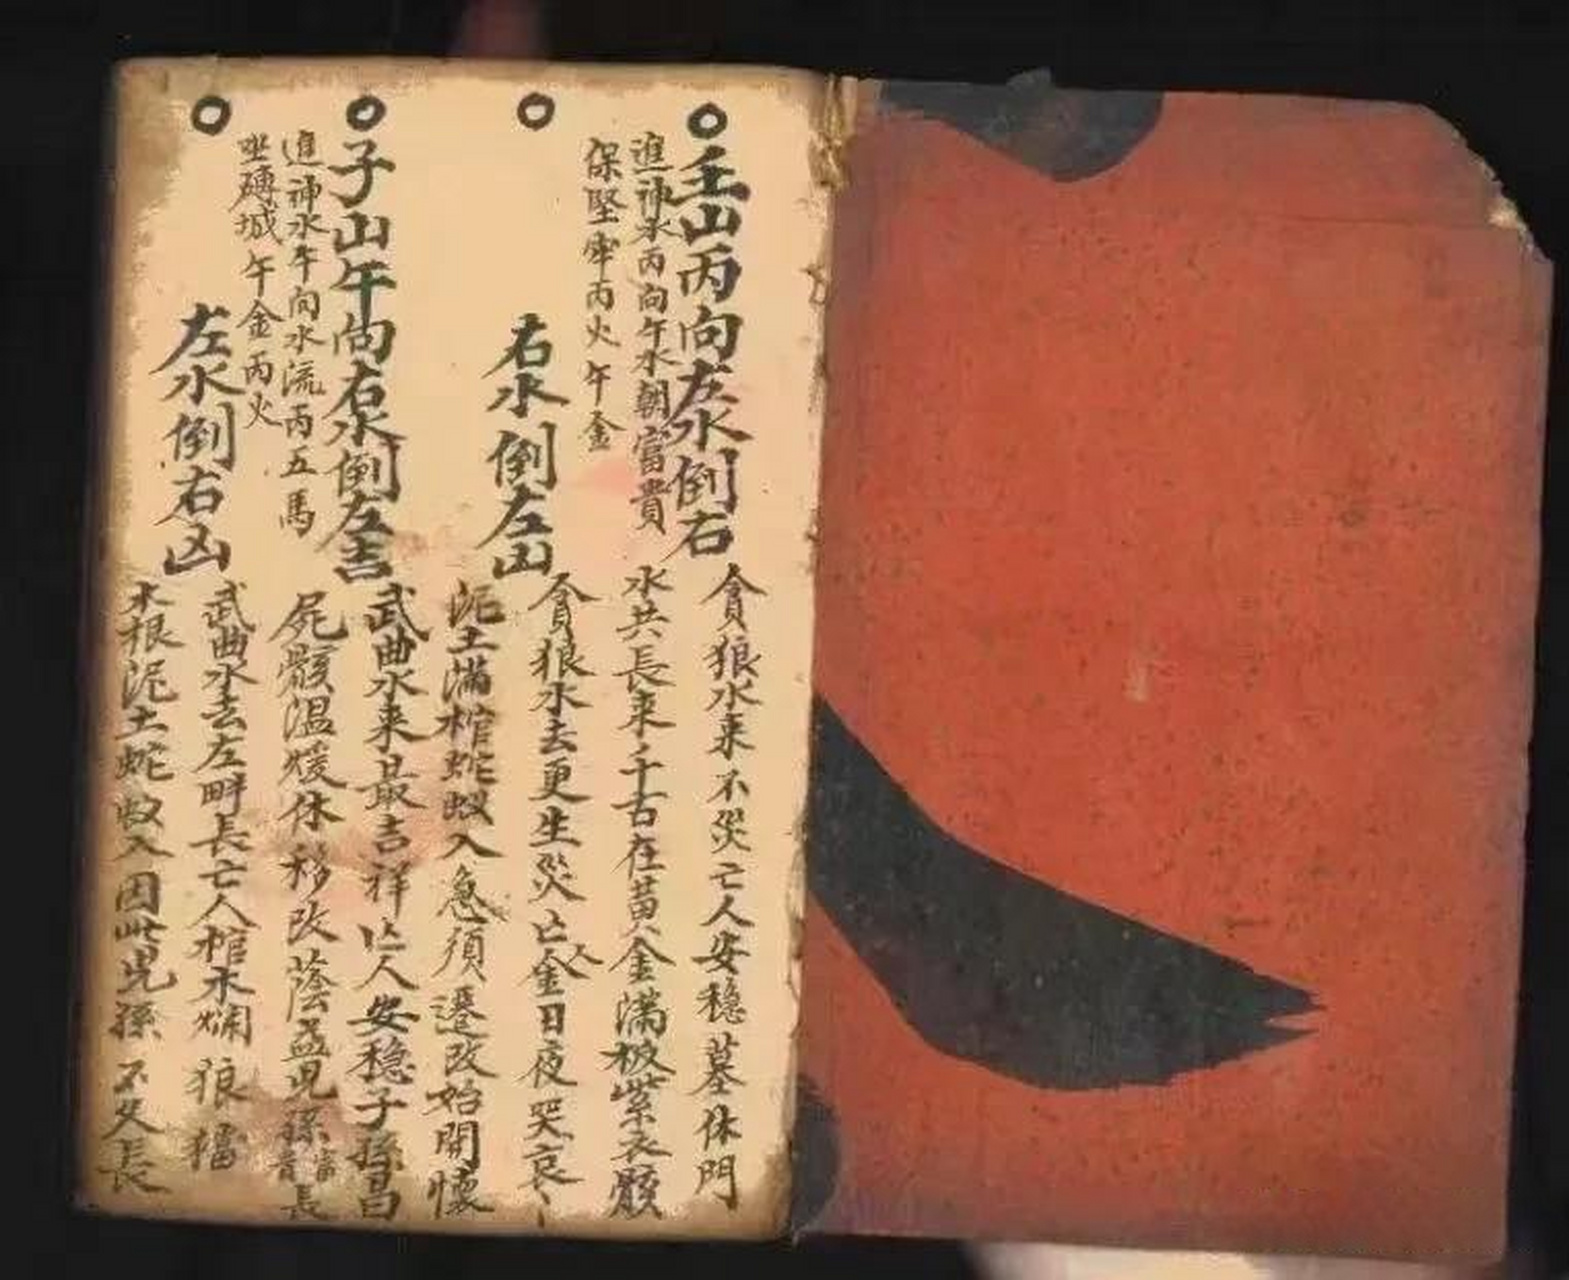 ○壬山丙向左水倒右
進神水丙向午水朝富貴
保堅牢丙火午金
貪狼水来不災亡人安穏墓休門
水共長来千古在黄金滿被紫衣骸
○右水倒左凶
貪狼水去更生災亡人金日夜哭哀〻
泥土滿棺蛇蚁入急須遷改始開懷
○子山午向右水倒左吉
進神水午向水流丙五馬
坐磚城午金丙火
武曲水来最吉祥亡人安穏子孫昌
屍骸温煖休移改蔭益児孫富貴長
○左水倒右凶
武曲水去左畔長亡人棺木爛狼
木根泥土蛇蚁入因此児孫不久長